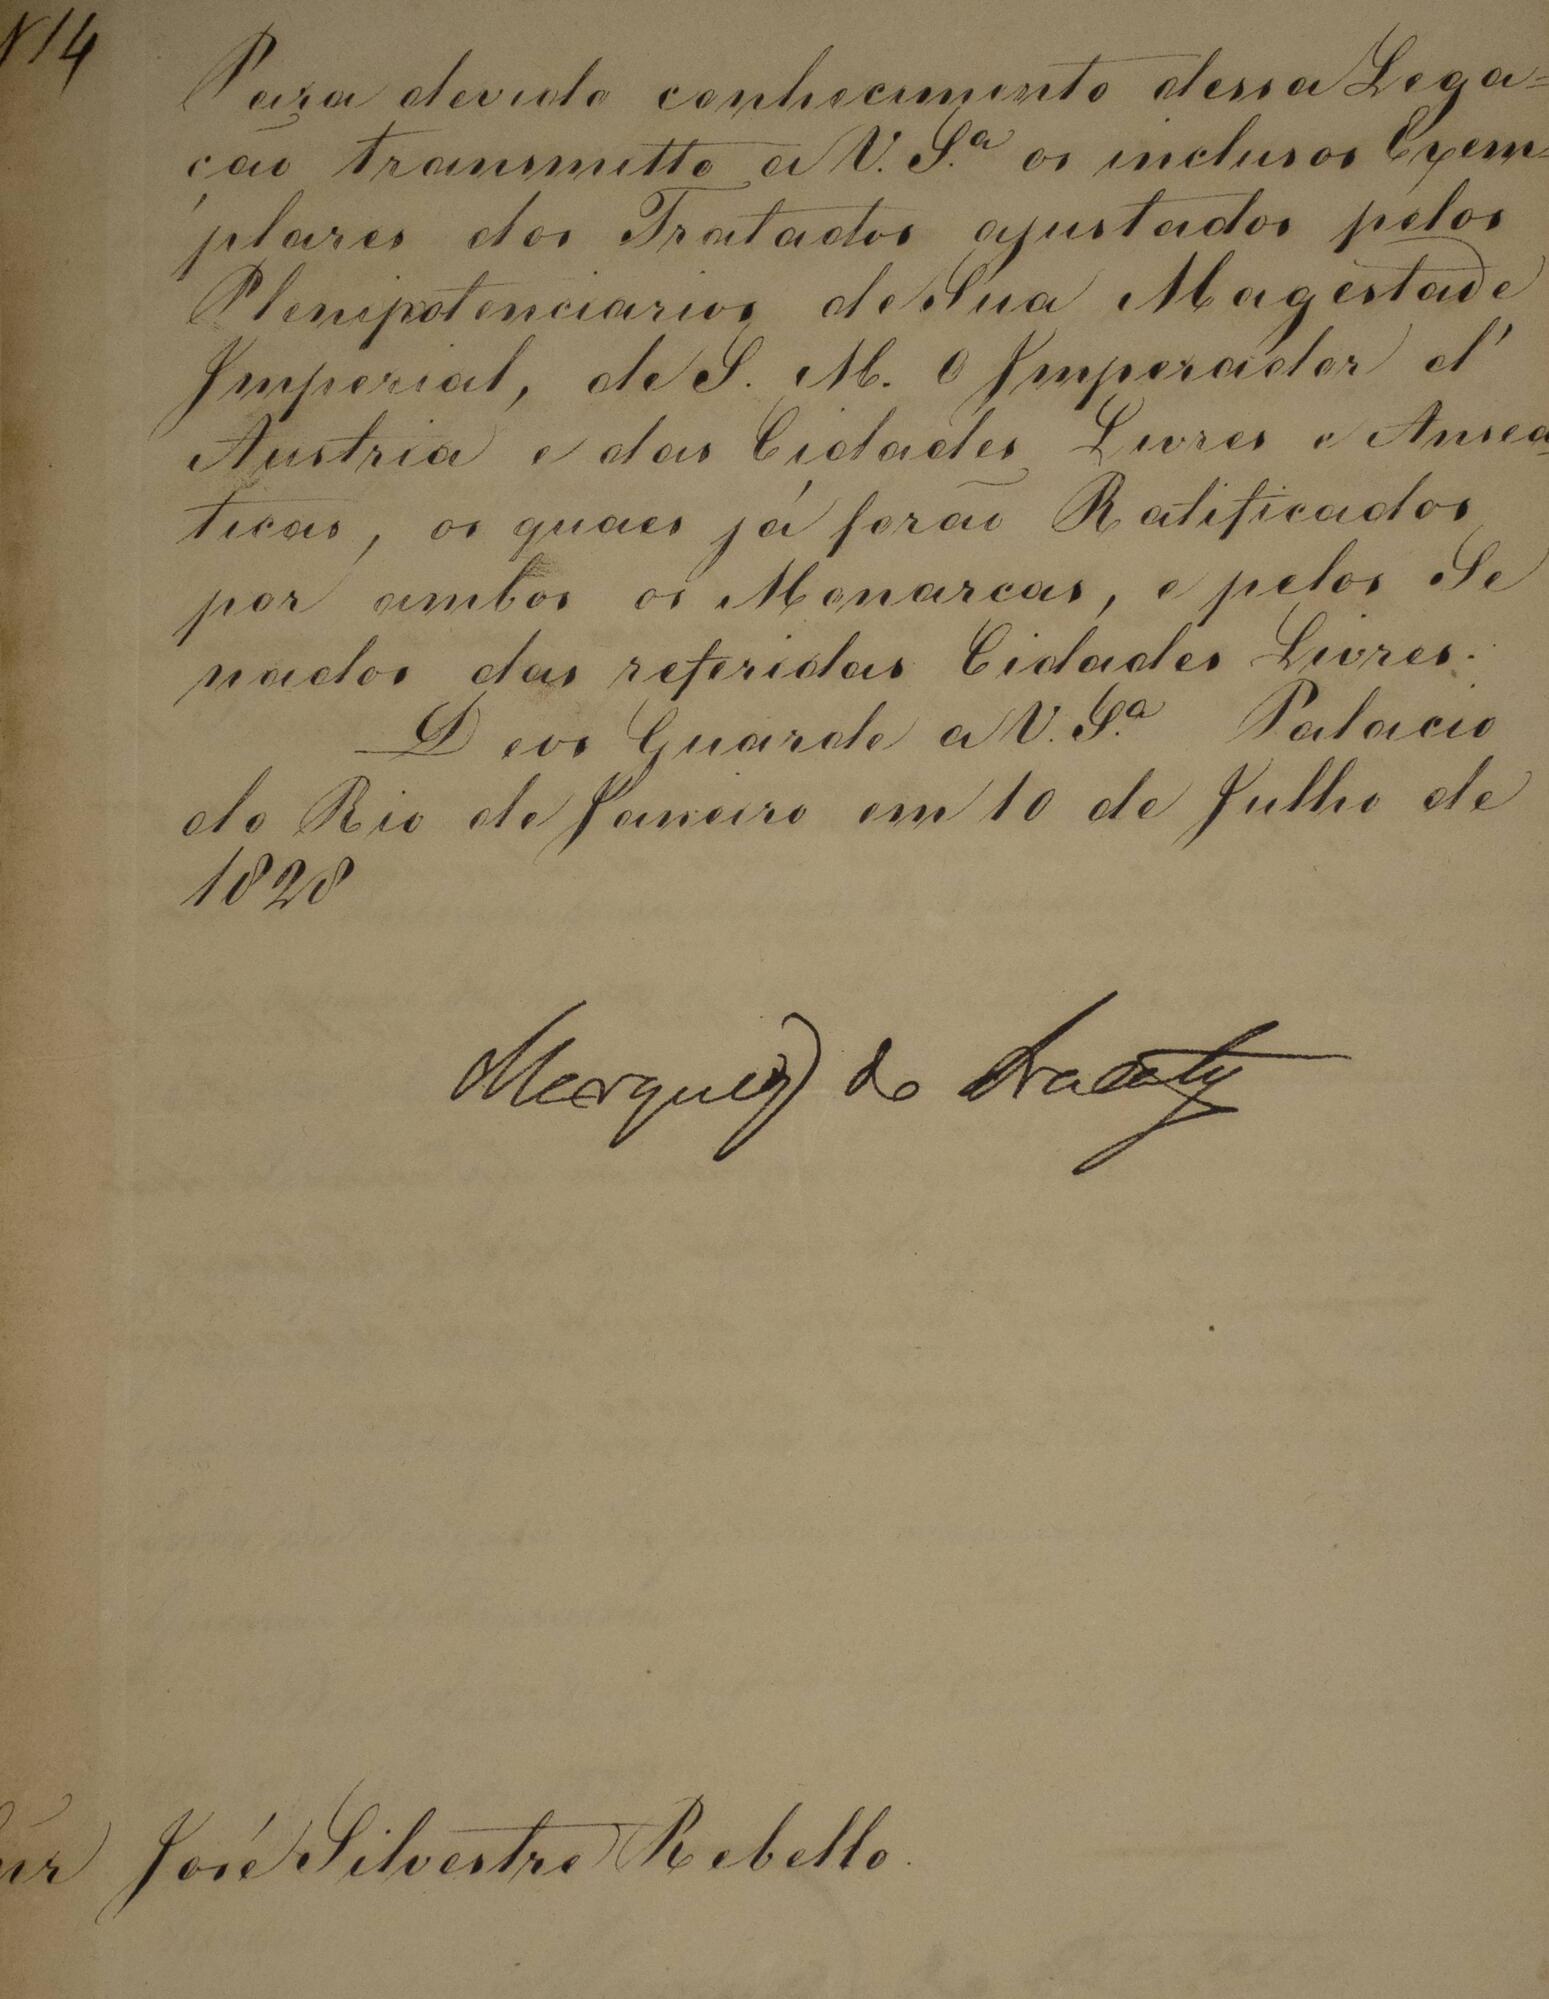 N 14
Para devido conhecimento dessa Lega=
ção transmitto a V. S.ª os inclusos Exem=
plares dos Tratados ajustados pelos
Plenipotenciarios de Sua Magestade
Imperial, de S. M. O Imperador d'
Austria e das Cidades Livres e Ansea=
ticas, os quaes já forão Ratificados
por ambos os Monarcas, e pelos Se
nados das referidas Cidades Livres.
Deos Guarde a V. S.ª Palacio
do Rio de Janeiro em 10 de Julho de
1828
Marquez de Aracaty
José Silvestre Rebello.